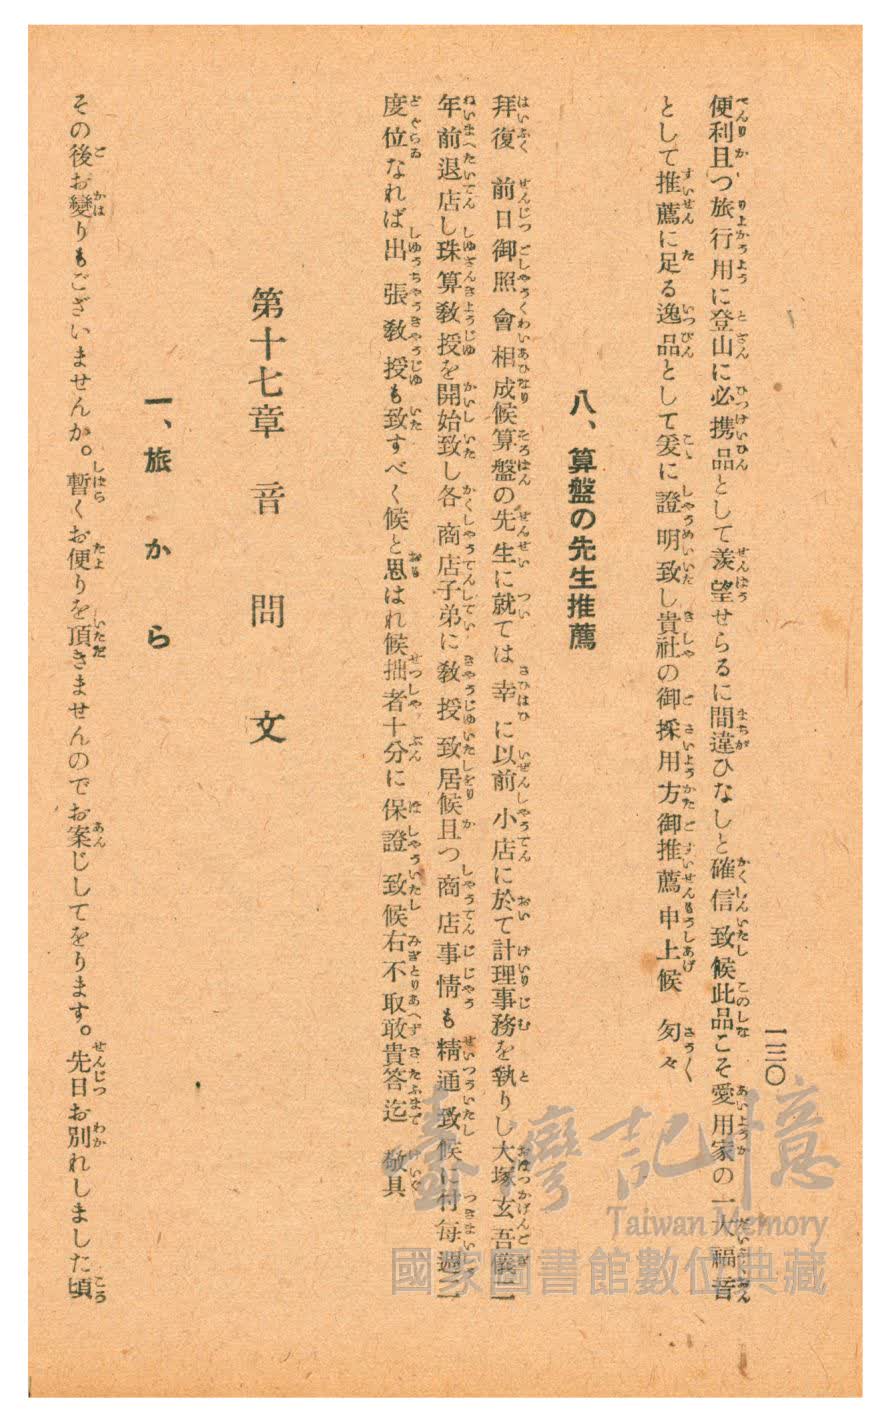 一三〇
便利且つ旅行用に登山に必携品として羨望せらるに間違ひなしと確信致候此品こそ愛用家の一大福音
として推薦に足る逸品として爰に證明致し貴社の御採用方御推薦申上候　匆々
八、算盤の先生推薦
拜復　前日御照會相成候算盤の先生に就ては幸に以前小店に於て計理事務を執りし大塚玄吾儀二
年前退店し珠算教授を開始致し各商店子弟に教授致居候且つ商店事情も精通致候に付每週二
度位なれば出張教授も致すべく候と思はれ候拙者十分に保證致候右不取敢貴答迄　敬具
第十七章　音問文
一、旅から
その後お變りもございませんか。暫くお便りを頂きませんのでお案じしてをります。先日お別れしました頃
臺灣記憶
Taiwan Memory
國家圖書館數位典藏